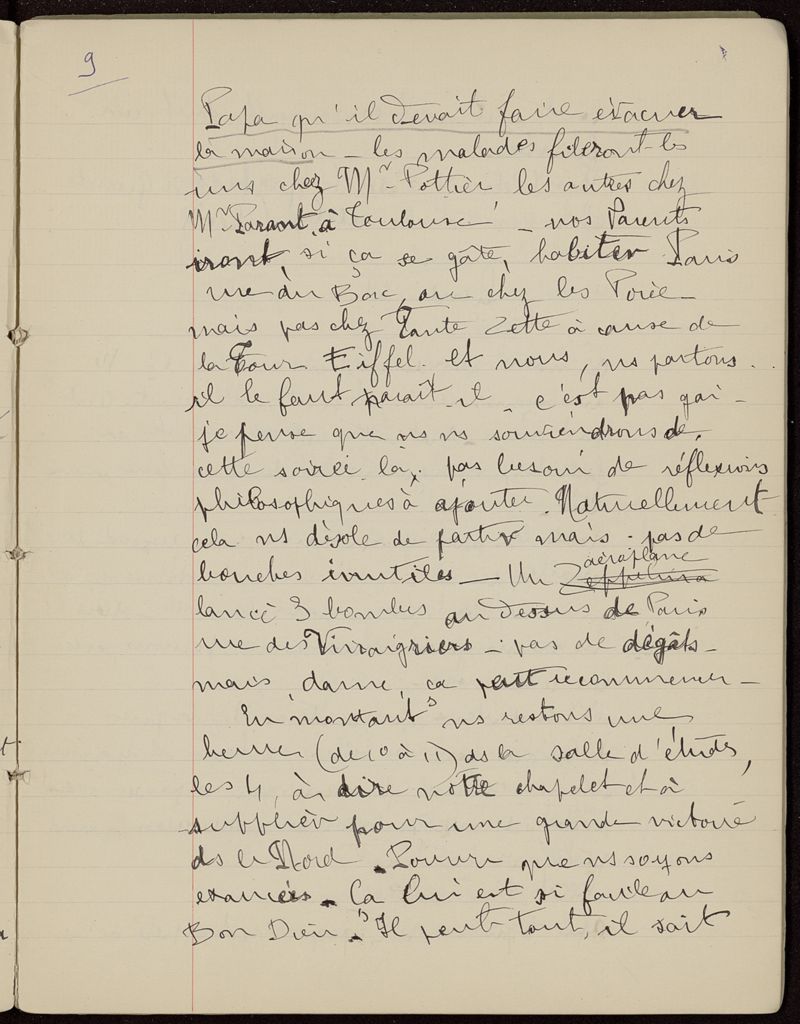 9
Papa qu'il devait faire évacuer
la maison – les malades fileront les
uns chez Mr Pottier les autres chez
Mr Parant à Toulouse – nos Parents
iront si ça se gâte, habiter Paris
rue du Bac, ou chez les
mais pas chez Tante Zette à cause de
la Tour Eiffel. et nous, ns partons.
il le faut parait-il – c'est pas gai –
je pense que ns ns souviendrons de
cette soirée là, pas besoin de réflexions
philosophiques à ajouter. Naturellement
cela ns désole de partir mais – pas de
bouches inutiles – Un Zeppelin a aéroplane
lancé 3 bombes au dessus de Paris
rue des Vinaigriers – pas de dégâts –
mais, dame, ça peut recommencer –
En montant ns restons une
heure (de 10 à 11) ds la salle d'études,
les 4, à dire notre chapelet et à
supplier pour une grande victoire
ds le Nord. Pourvu que ns soyons
exaucés. Ca lui est si facile au
Bon Dieu. Il peut tout, il sait